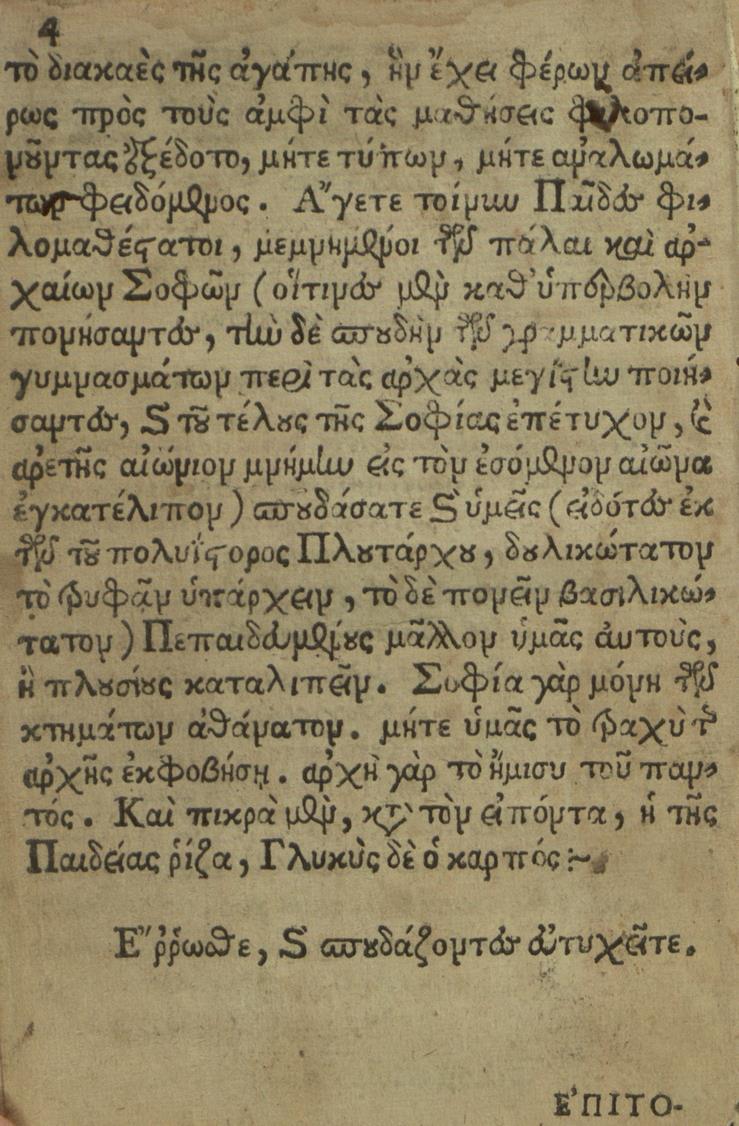 4
τὸ διακαὲς τῆς ἀγάπης, ἣν ἔχει φέρων ἀπεί-
ρως πρὸς τοὺς ἀμφὶ τὰς μαθήσεις φιλοπο-
νοῦντας ἐξέδοτο, μήτε τύπων, μήτε ἀναλωμά-
των φειδόμενος. Ἄγετε τοίνυν Παῖδες φι-
λομαθέστατοι, μεμνημένοι τῶν πάλαι καὶ ἀρ-
χαίων Σοφῶν (οἵτινες μὲν καθ' ὑπερβολὴν
πονήσαντες, τὴν δὲ σπουδὴν τῶν γραμματικῶν
γυμνασμάτων περὶ τὰς ἀρχὰς μεγίστην ποιή-
σαντες, καὶ τοῦ τέλους τῆς Σοφίας ἐπέτυχον, καὶ
ἀρετῆς αἰώνιον μνήμην εἰς τὸν ἐσόμενον αἰῶνα
ἐγκατέλιπον) σπουδάσατε καὶ ὑμεῖς (εἰδότες ἐκ
τῶν τοῦ πολυΐστορος Πλουτάρχου, δουλικώτατον
τὸ τρυφᾶν ὑπάρχειν, τὸ δὲ πονεῖν βασιλικώ-
τατον) Πεπαιδευμένους μᾶλλον ὑμᾶς αὐτοὺς,
ἢ πλουσίους καταλιπεῖν. Σοφία γὰρ μόνη τῶν
κτημάτων ἀθάνατον. μήτε ὑμᾶς τὸ τραχὺ τῆς
ἀρχῆς ἐκφοβήσῃ. ἀρχὴ γὰρ τὸ ἥμισυ τοῦ παν-
τός. Καὶ πικρὰ μὲν, κατὰ τὸν εἰπόντα, ἡ τῆς
Παιδείας ῥίζα, Γλυκὺς δὲ ὁ καρπός :~
Ἔῤῥωσθε, καὶ σπουδάζοντες εὐτυχεῖτε.
ἘΠΙΤΟ-